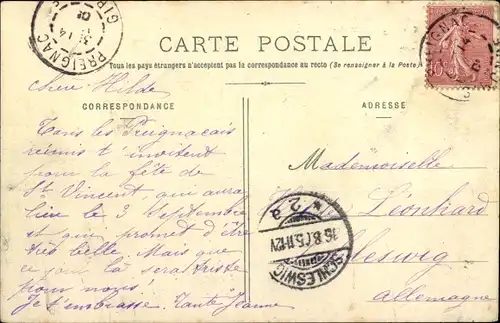 CARTE POSTALE
Tous les pays étrangers n'acceptent pas la correspondance au recto (Se renseigner à la Poste)
CORRESPONDANCE
ADRESSE
chère Hilde
Tous les Preignacais
réunis t'invitent
pour la fête de
St Vincent, qui aura
lieu le 3 Septembre
et qui promet d'être
très belle. Mais que
ce jour là sera triste
pour nous!
Je t'embrasse. Tante Jeanne
Mademoiselle
Léonhard
Schleswig
Allemagne
PREIGNAC
PREIGNAC
10c
* 2a
16.8.05.11-12V
SCHLESWIG